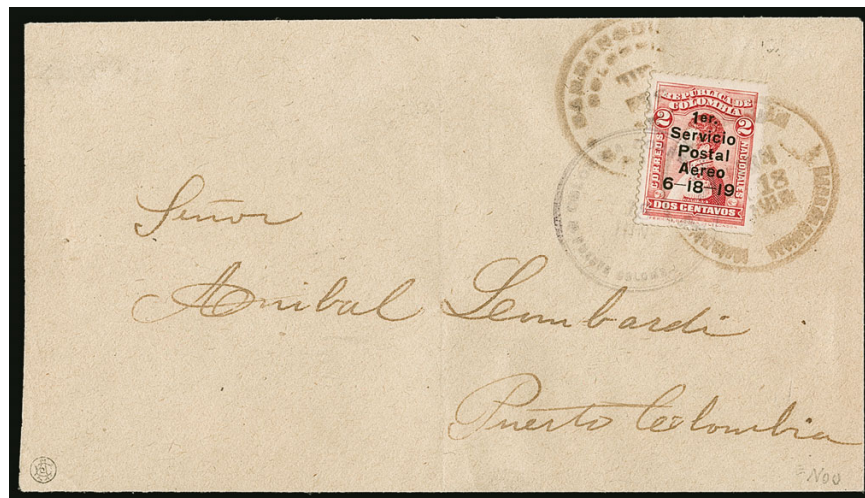 BARRANQUI
REPÚBLICA DE
COLOMBIA
2 2
1er.
Servicio
Postal
Aéreo
6-18-19
CORREOS NACIONALES
DOS CENTAVOS
18
Señor
Anibal Lombardi
Puerto Colombia